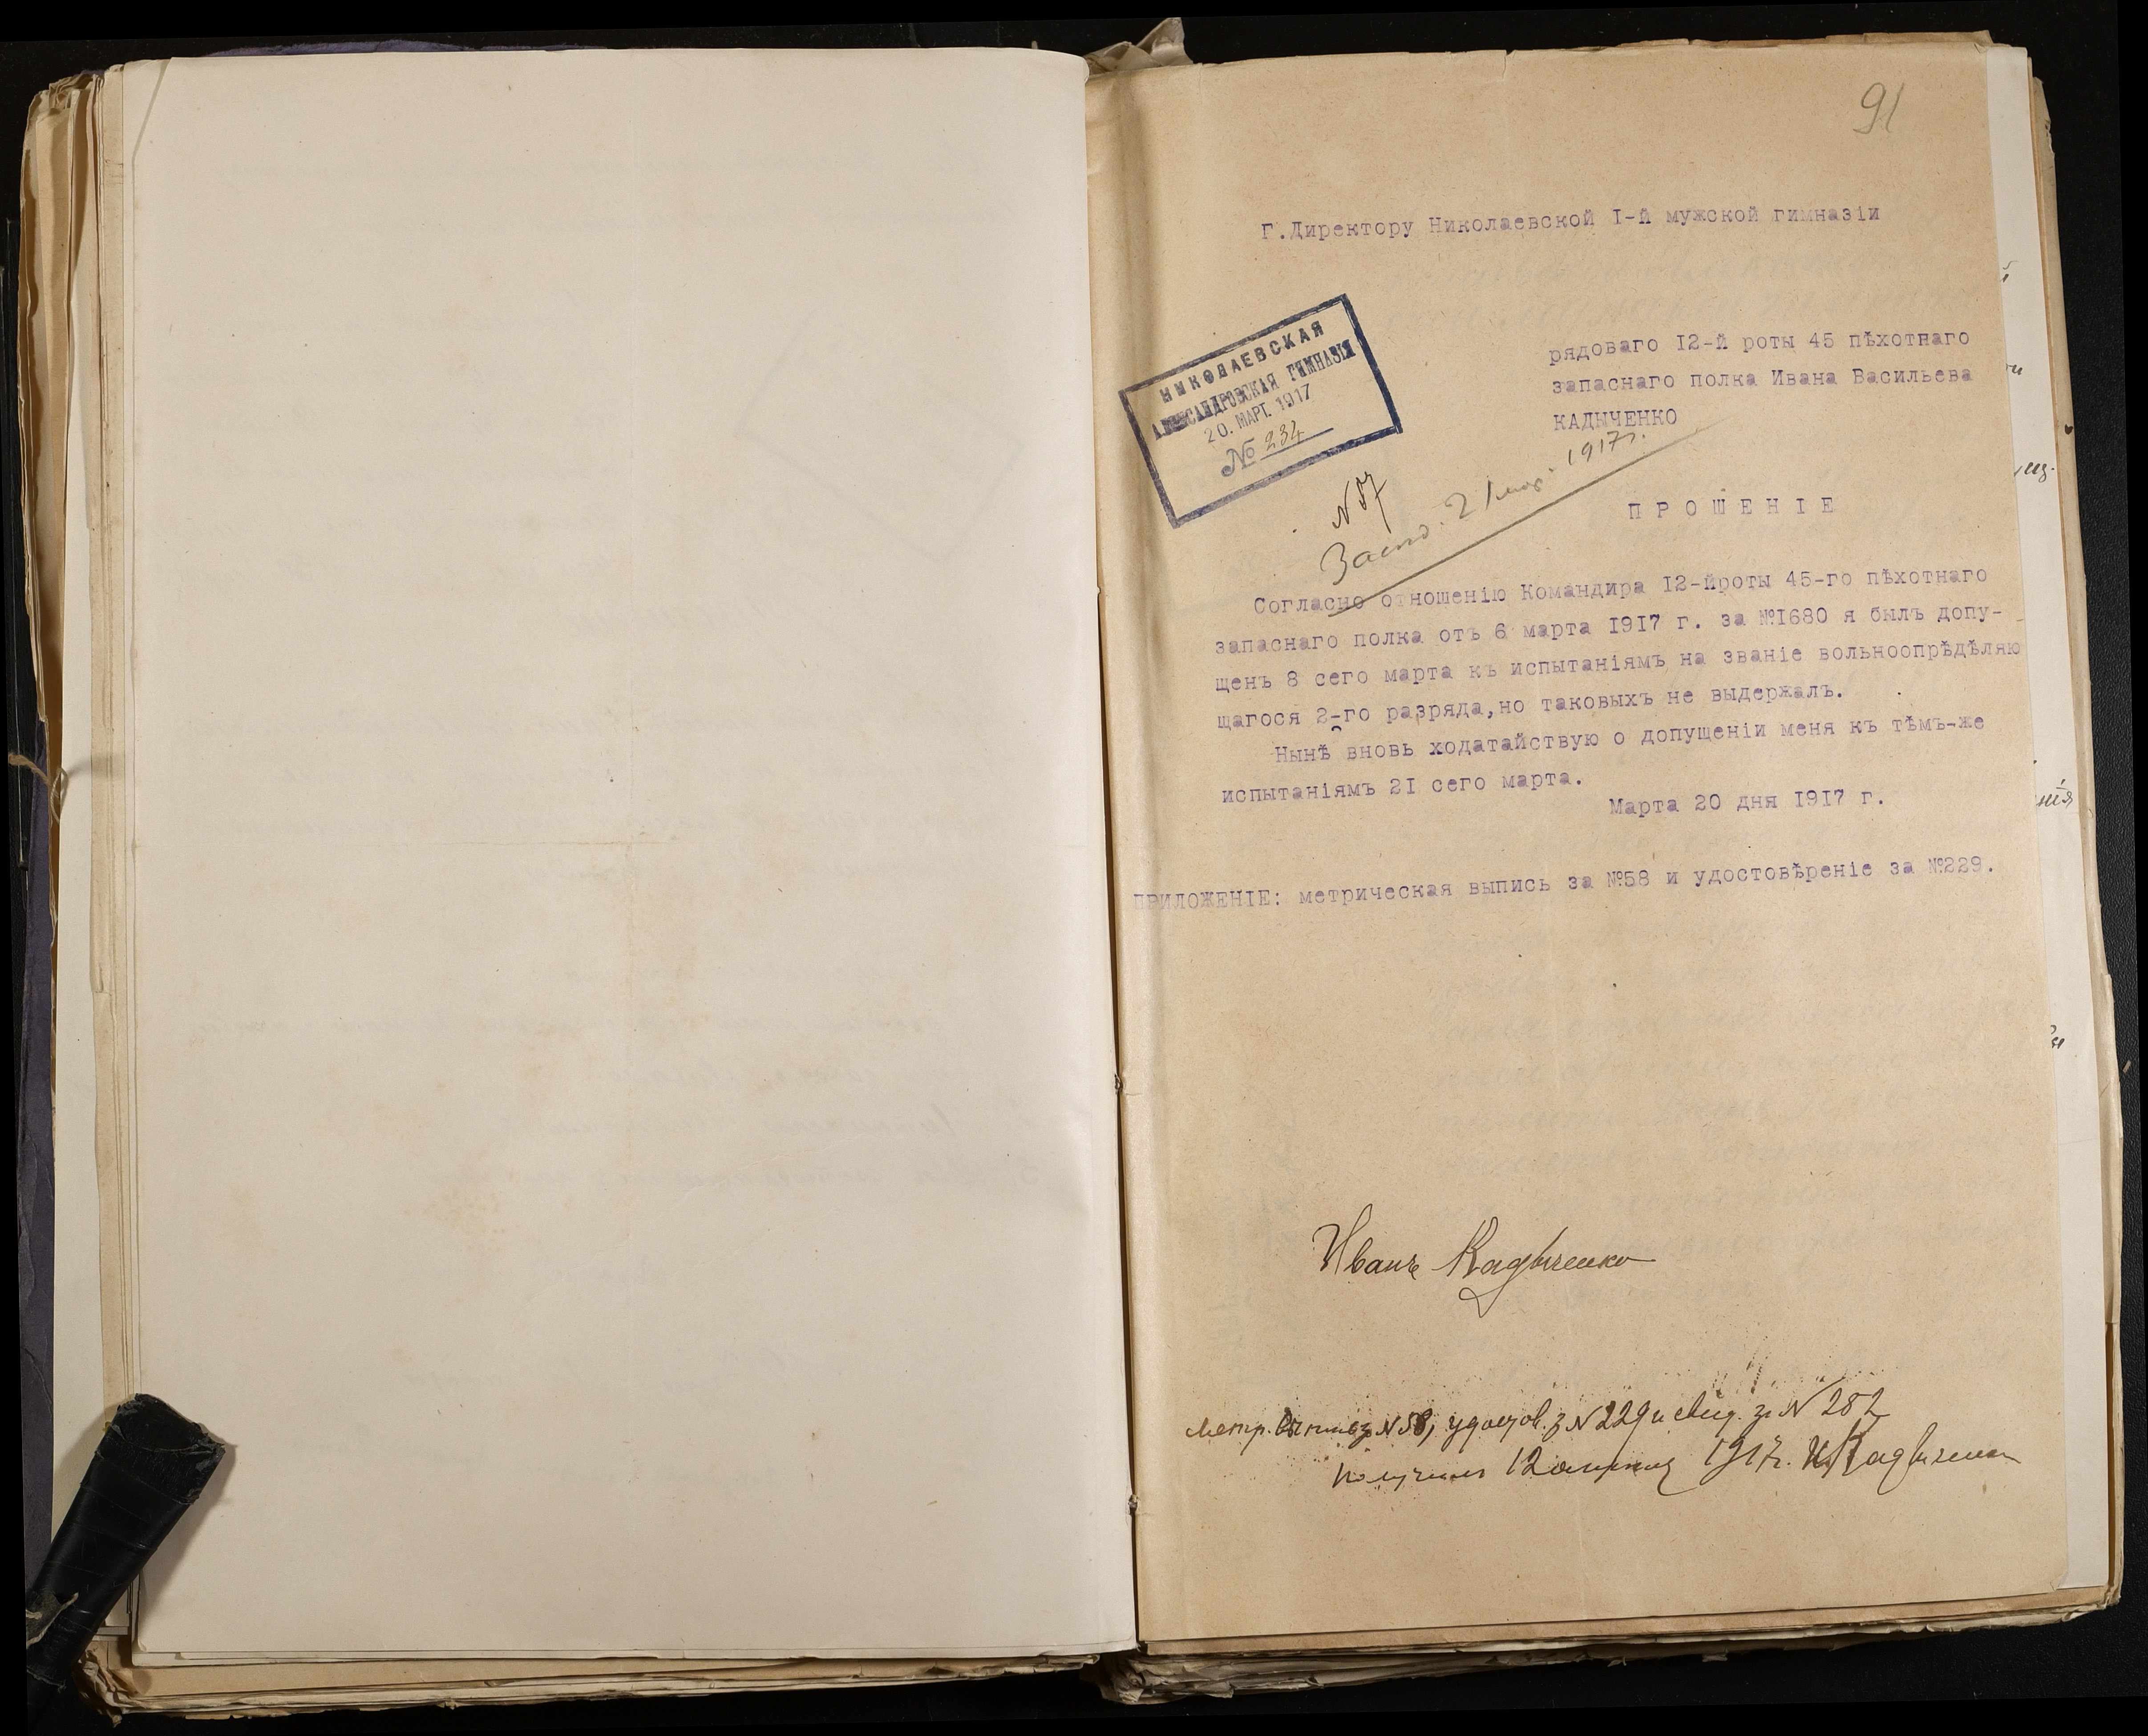 91
Г.Директору Николаевской I-й мужской гимназіи
НИКОЛАЕВСКАЯ
АЛЕКСАНДРОВСКАЯ ГИМНАЗІЯ
20. МАРТ. 1917
№ 234
рядоваго I2-й роты 45 пѣхотнаго
запаснаго полка Ивана Васильева
КАДЫЧЕНКО
N 57
21 мар. 1917г.
ПРОШЕНІЕ
Согласно отношенію Командира I2-йроты 45-го пѣхотнаго
запаснаго полка отъ 6 марта I9I7 г. за №I680 я былъ допу-
щенъ 8 сего марта къ испытаніямъ на званіе вольноопрѣдѣляю
щагося 2-го разряда,но таковыхъ не выдержалъ.
Нынѣ вновь ходатайствую о допущеніи меня къ тѣмъ-же
испытаніямъ 2I сего марта.
Марта 20 дня I9I7 г.
ПРИЛОЖЕНІЕ: метрическая выпись за №58 и удостовѣреніе за №229.
Иванъ Кадыченко
Метр. выпись з N 58, удостов. з N 229 и свид. за N 282
получилъ 12 апрѣля 1917г. И. Кадыченко